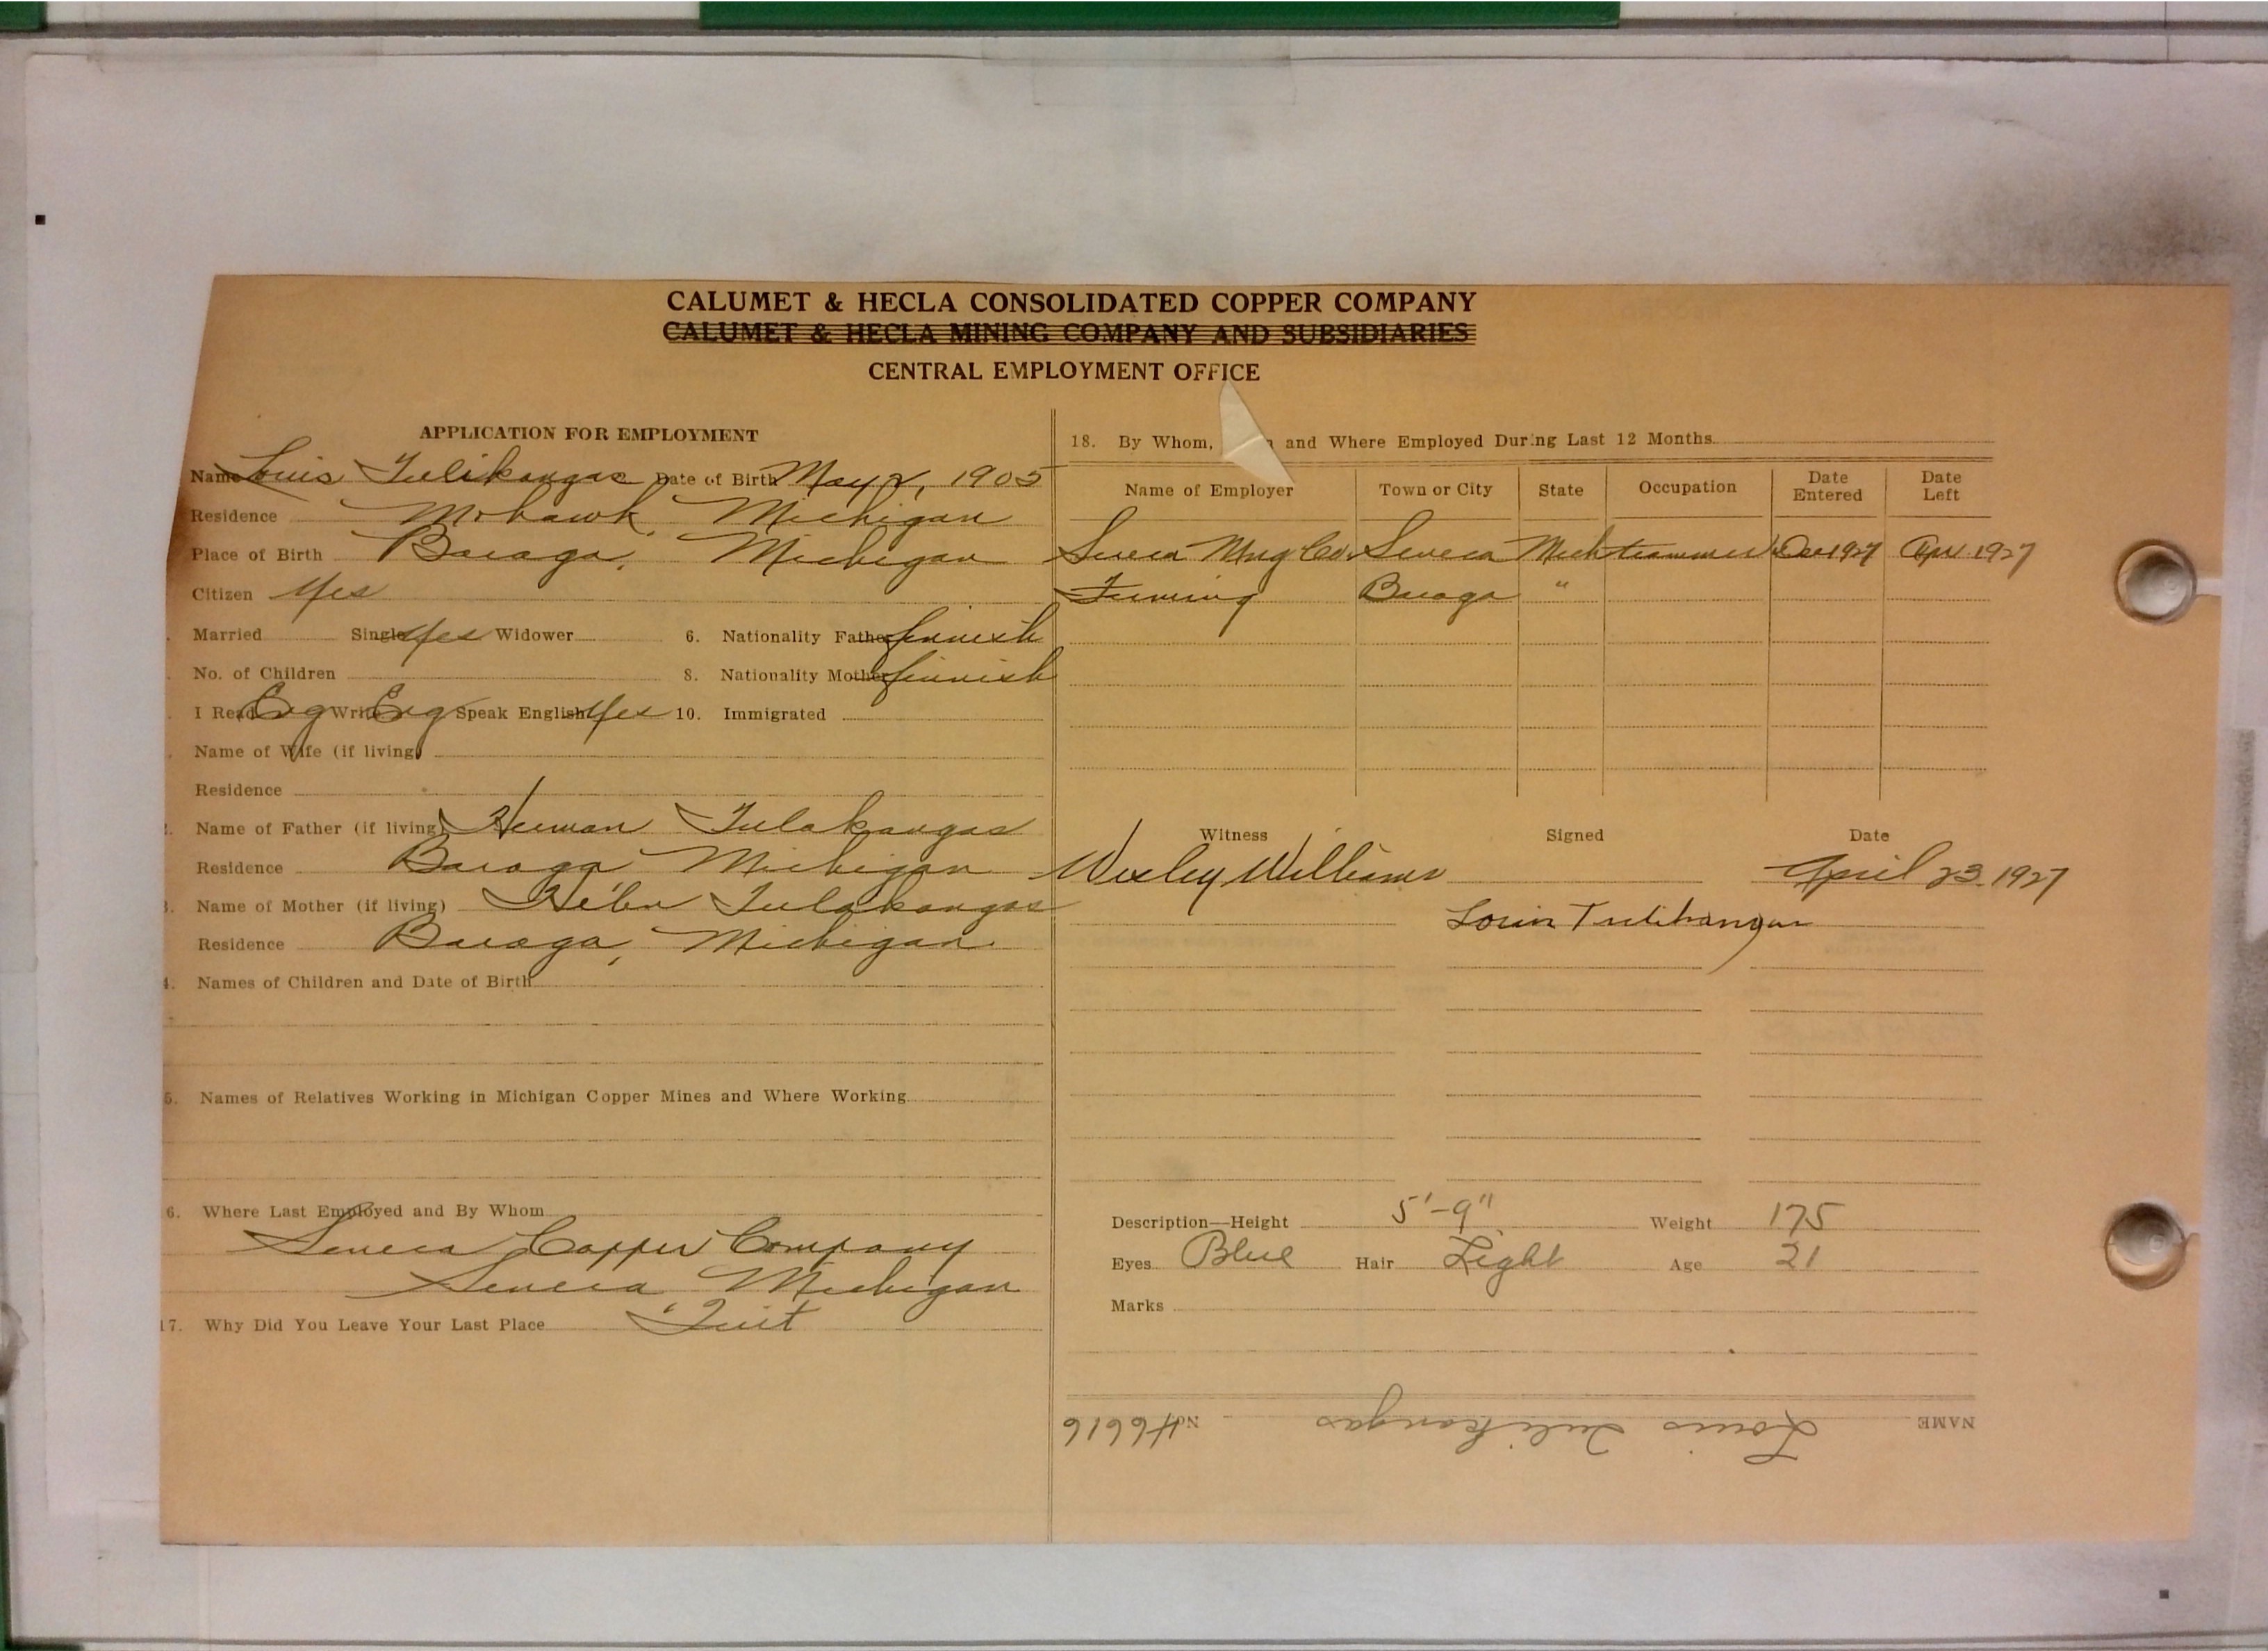 CALUMET & HECLA CONSOLIDATED COPPER COMPANY
CALUMET & HECLA MINING COMPANY AND SUBSIDIARIES
CENTRAL EMPLOYMENT OFFICE
APPLICATION FOR EMPLOYMENT
Name Louis Tulikangas Date of Birth May 2, 1905
Residence Mohawk, Michigan
Place of Birth Baraga, Michigan
Citizen Yes
Married Single Yes Widower 6. Nationality Father finnish
No. of Children 8. Nationality Mother finnish
I Read Eng Write Eng Speak English Yes 10. Immigrated
Name of Wife (if living)
Residence
Name of Father (if living) Herman Tulakangas
Residence Baraga Michigan
Name of Mother (if living) Tulakangas
Residence Baraga, Michigan.
Names of Children and Date of Birth
5. Names of Relatives Working in Michigan Copper Mines and Where Working
6. Where Last Employed and By Whom
Seneca Copper Company
Seneca Michigan
17. Why Did You Leave Your Last Place Quit
18. By Whom, and Where Employed During Last 12 Months
Name of Employer Town or City State Occupation Date Entered Date Left
Seneca Mng Co. Seneca Mich trammer Dec 1927 Apr. 1927
Farming Baraga "
Witness Signed Date
Wesley Williams April 23, 1927
Louis Tulikangas
Description—Height 5'-9" Weight 175
Eyes Blue Hair Light Age 21
Marks
NAME Louis Tulikangas No. 46616